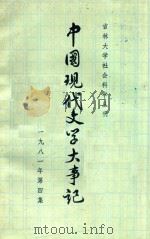 吉林大学社会科学
中国现代文学大事记
一九八一年第四集